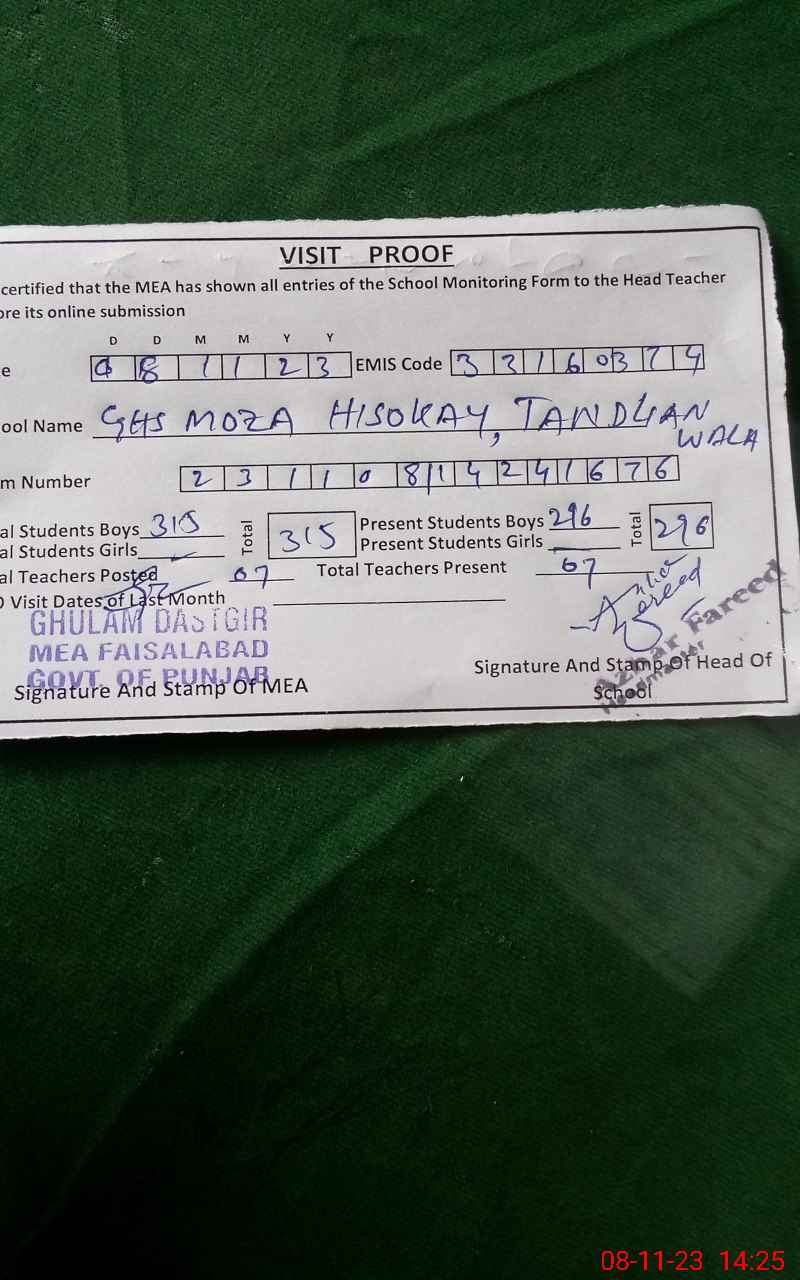 VISIT PROOF
certified that the MEA has shown all entries of the School Monitoring Form to the Head Teacher
ore its online submission
D D M M Y Y
e 0 8 1 1 2 3 EMIS Code 3 3 1 6 0 3 7 4
ool Name GHS MOZA HISOKAY, TANDLIAN
WALA
m Number 2 3 1 1 0 8 1 4 2 4 1 6 7 6
al Students Boys 315 Total 315 Present Students Boys 296 Total 296
al Students Girls Present Students Girls
al Teachers Posted 07 Total Teachers Present 07
O Visit Dates of Last Month
GHULAM DASTGIR
MEA FAISALABAD
GOVT. OF PUNJAB
Signature And Stamp Of MEA
Fareed
Azhar Fareed
Headmaster
Signature And Stamp Of Head Of
School
08-11-23 14:25